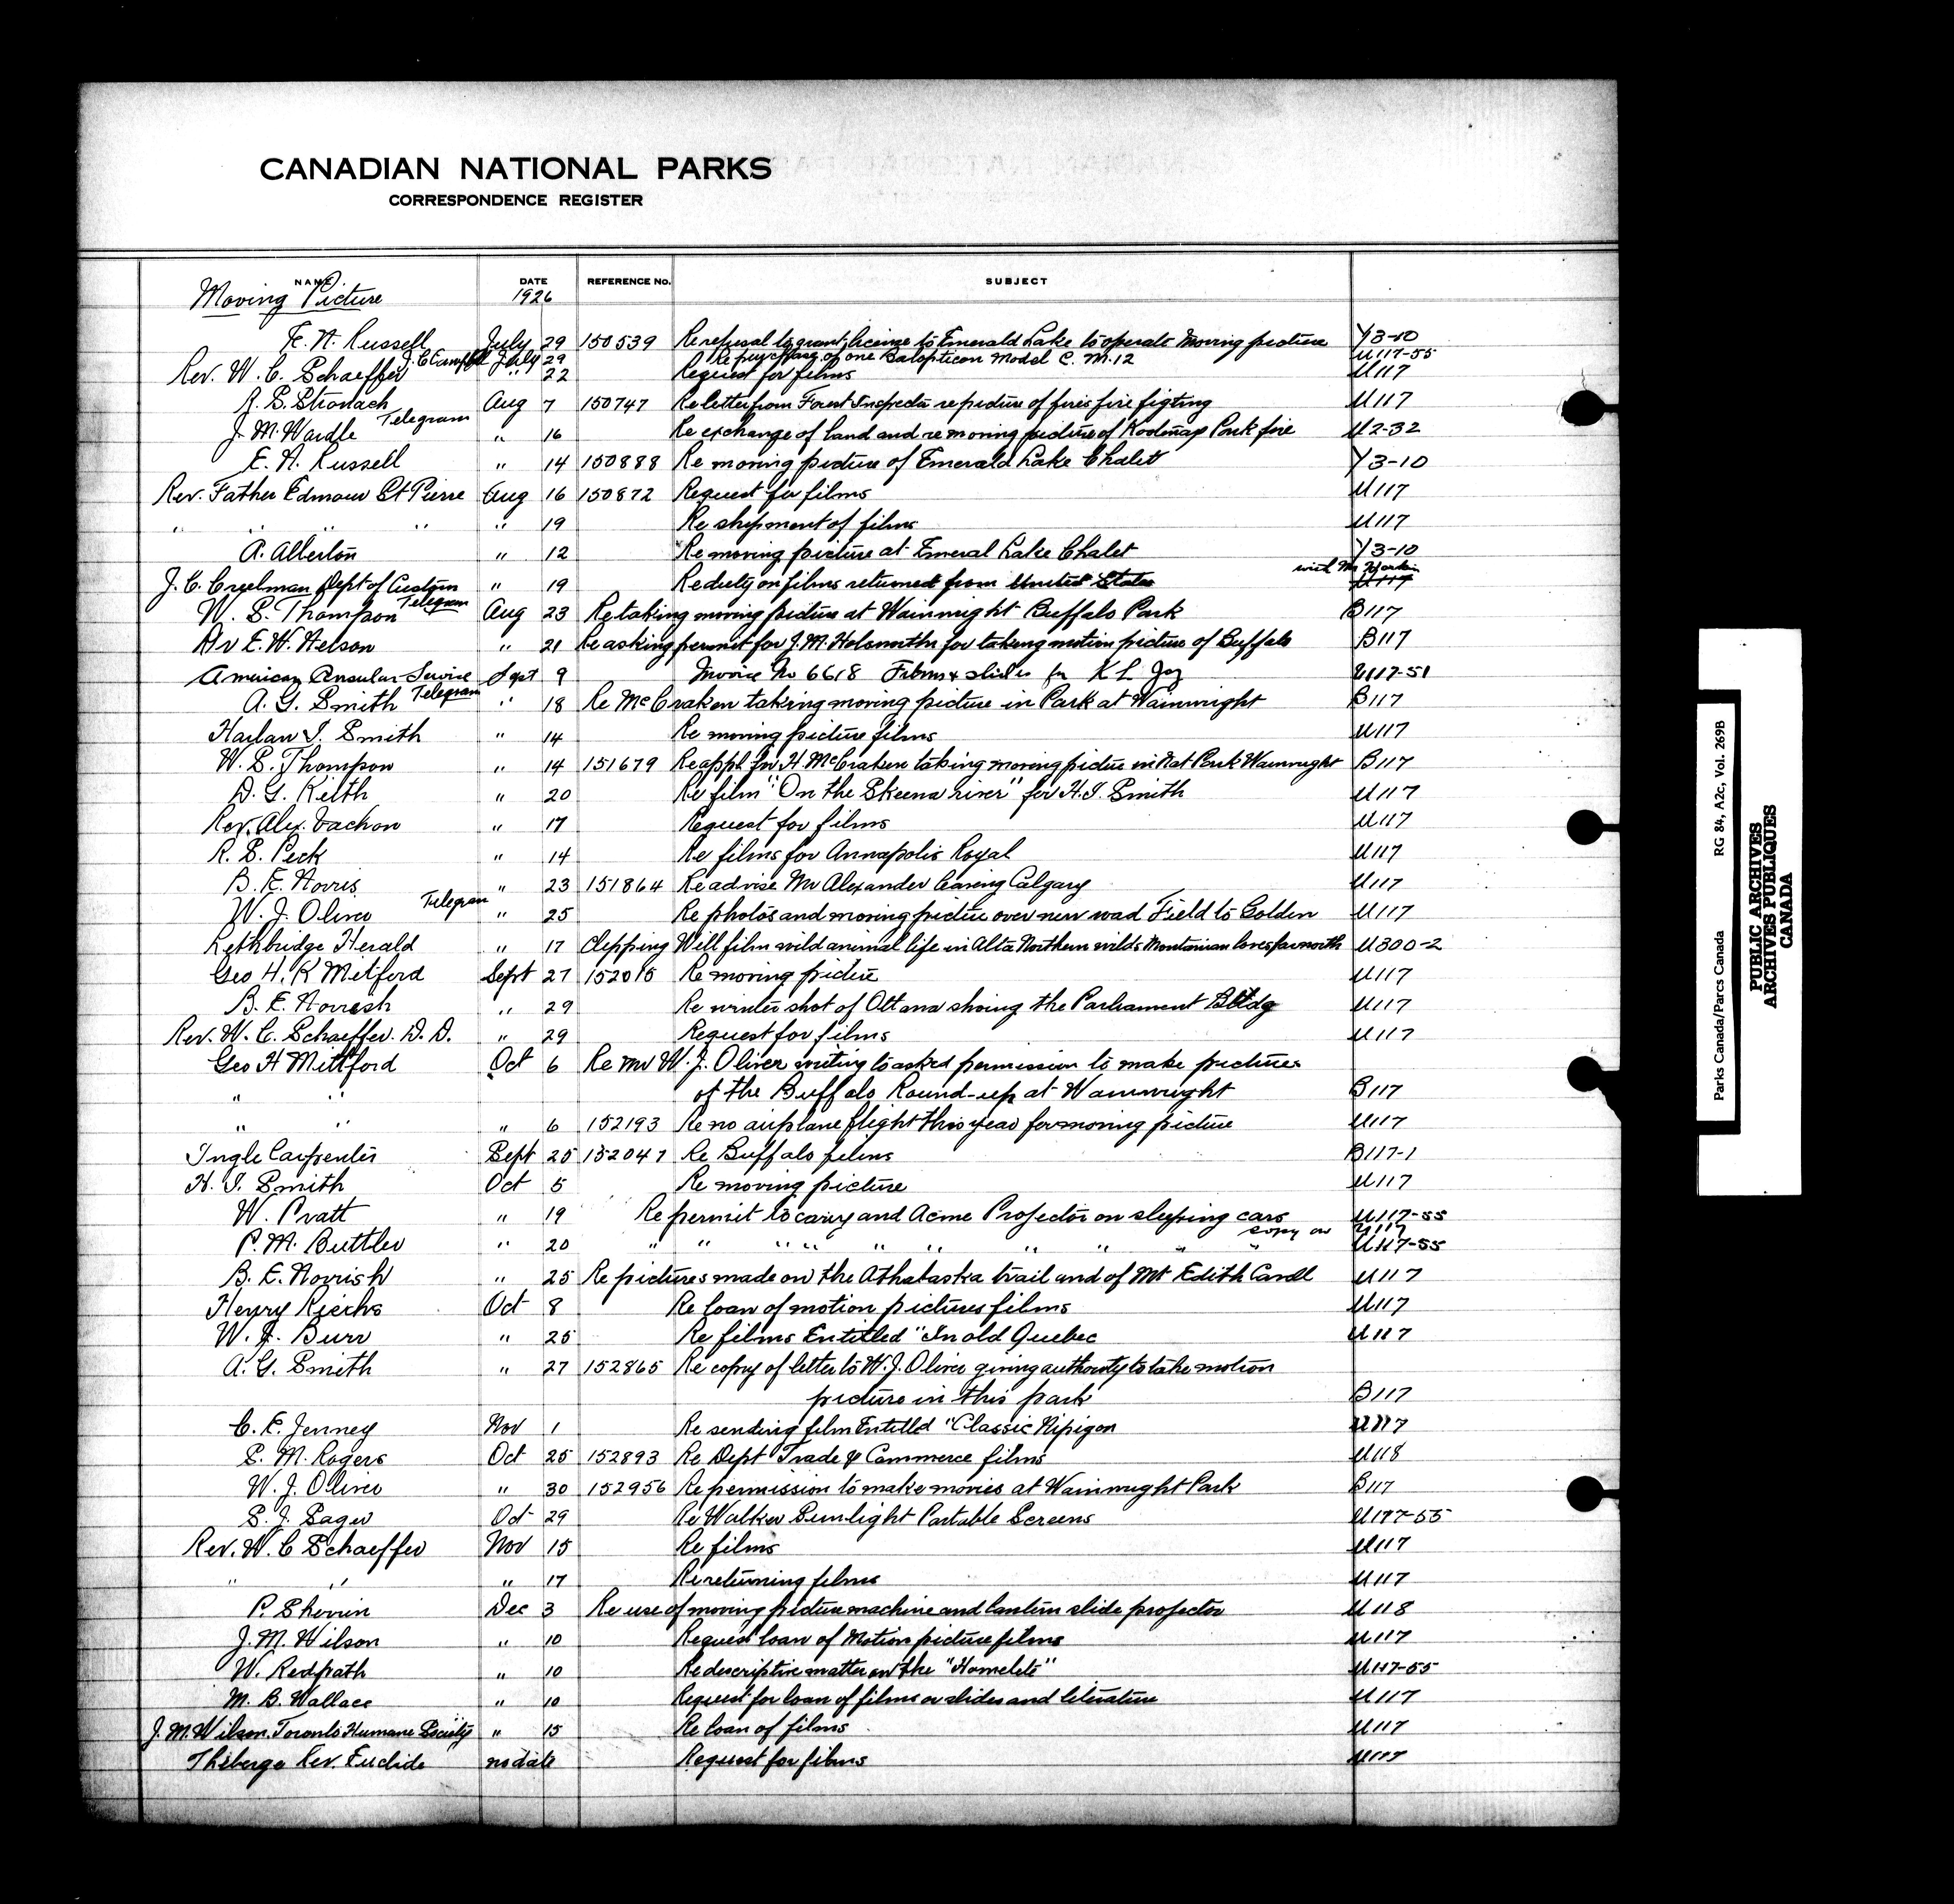 CANADIAN NATIONAL PARKS
CORRESPONDENCE REGISTER
NAME DATE REFERENCE NO. SUBJECT
Moving Picture 1926
E. N. Russell July 29 150539 Re refusal to grant license to Emerald Lake to operate Moving picture Y3-10
J. C. Campbell July 29 Re purchase of one Balopticon Model C. M. 12 U117-55
Rev. W. C. Schaeffer " 22 Request for films U117
R. S. Stronach Aug 7 150747 Re letter from Forest Inspector re picture of fires fire figting U117
J. M. Wardle Telegram " 16 Re exchange of land and re moving picture of Kootenay Park fire U2-32
E. N. Russell " 14 150888 Re moving picture of Emerald Lake Chalet Y3-10
Rev. Father Edmour St Pierre Aug 16 150872 Request for films U117
" " " " " 19 Re shipment of films U117
A. Allerton " 12 Re moving picture at Emeral Lake Chalet Y3-10
with Mr
J. C. Creelman Dept of Custom " 19 Re duty on films returned from United States U117
W. S. Thompson Telegram Aug 23 Re taking moving picture at Wainwright Buffalo Park B117
Dr E. W. Nelson " 21 Re asking permit for J. M. Holsworth for taking motion picture of Buffalo B117
American Consular Service Sept 9 Invoice No 6618 Films & slides for K L U117-51
A. G. Smith Telegram " 18 Re McCraken taking moving picture in Park at Wainwright B117
Harlan I. Smith " 14 Re moving picture films U117
W. S. Thompson " 14 151679 Re appl. for H. McCraken taking moving picture in Nat Park Wainwright B117
D. G. Keith " 20 Re film "On the Skeena river" for H. I. Smith U117
Rev. Alex. Vachon " 17 Request for films U117
R. S. Peck " 14 Re films for Annapolis Royal U117
B. E. Norris " 23 151864 Re advise Mr Alexander leaving Calgary U117
W. J. Oliver Telegram " 25 Re photos and moving picture over new road Field to Golden U117
Lethbridge Herald " 17 Clipping Will film wild animal life in Alta Northern wilds Montanian loves far north U300-2
Geo H. K Mitford Sept 27 152015 Re moving picture U117
B. E. Norrish " 29 Re winter shot of Ottawa shoing the Parliament Bldg U117
Rev. W. C. Schaeffer. D. D. " 29 Request for films U117
Geo H Mittford Oct 6 Re Mr W. J. Oliver writing to asked permission to make pictures
" " of the Buffalo Round-up at Wainwright B117
" " " 6 152193 Re no airplane flight this year for moving picture U117
Ingle Carpenter Sept 25 152047 Re Buffalo films B117-1
H. I. Smith Oct 5 Re moving picture U117
W. Pratt " 19 Re permit to carry and Acme Projector on sleeping cars U117-55
copy on U117
P. M. Buttler " 20 " " " " " " " " " " U117-55
B. E. Norrish " 25 Re pictures made on the Athabaska trail and of Mt Edith Cavell U117
Henry Riechs Oct 8 Re loan of motion pictures films U117
W. J. Burr " 25 Re films Entitled "In old Quebec U117
A. G. Smith " 27 152865 Re copy of letter to W. J. Oliver giving authority to take motion
picture in this park B117
C. E. Jenney Nov 1 Re sending film Entitled "Classic Nipigon U117
S. M. Rogers Oct 25 152893 Re Dept Trade & Commerce films U118
W. J. Oliver " 30 152956 Re permission to make movies at Wainwright Park B117
S. J. Sager Oct 29 Re Walker Sunlight Portable Screens U117-55
Rev. W. C Schaeffer Nov 15 Re films U117
" " " 17 Re returning films U117
P. Sherrin Dec 3 Re use of moving picture machine and lantern slide projector U118
J. M. Wilson " 10 Request loan of Motion picture films U117
W. Redpath " 10 Re descriptive matter on the "Homelite" U117-55
M. B. Wallace " 10 Request for loan of films or slides and literature U117
J. M. Wilson. Toronto Humane Society " 15 Re loan of films U117
Théberge Rev. Euclide no date Request for films U117
Parks Canada/Parcs Canada RG 84, A2c, Vol. 269B
PUBLIC ARCHIVES
ARCHIVES PUBLIQUES
CANADA